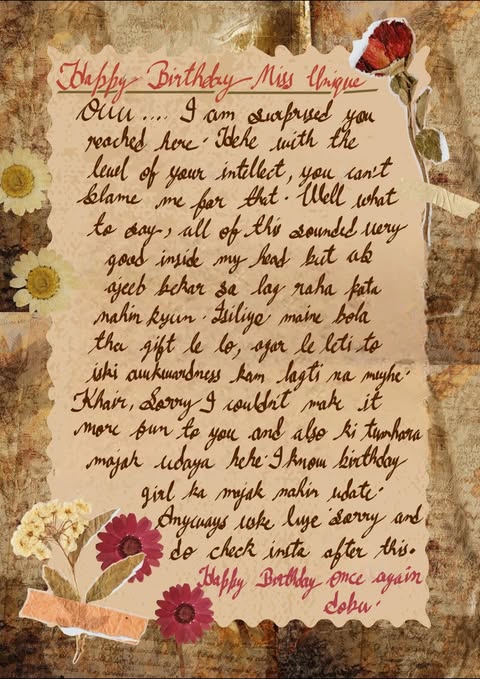 Happy Birthday Miss Unique
Ouu .... I am surprised you
reached here. Hehe with the
level of your intellect, you can't
blame me for that. Well what
to say, all of this sounded very
good inside my head but ab
ajeeb bekar sa lag raha pata
nahin kyun. Isiliye maine bola
tha gift le lo, agar le leti to
iski awkwardness kam lagti na mujhe.
Khair, Sorry I couldn't make it
more fun to you and also ki tumhara
majak udaya hehe. I know birthday
girl ka majak nahin udate.
Anyways uske liye sorry and
do check insta after this.
Happy Birthday once again